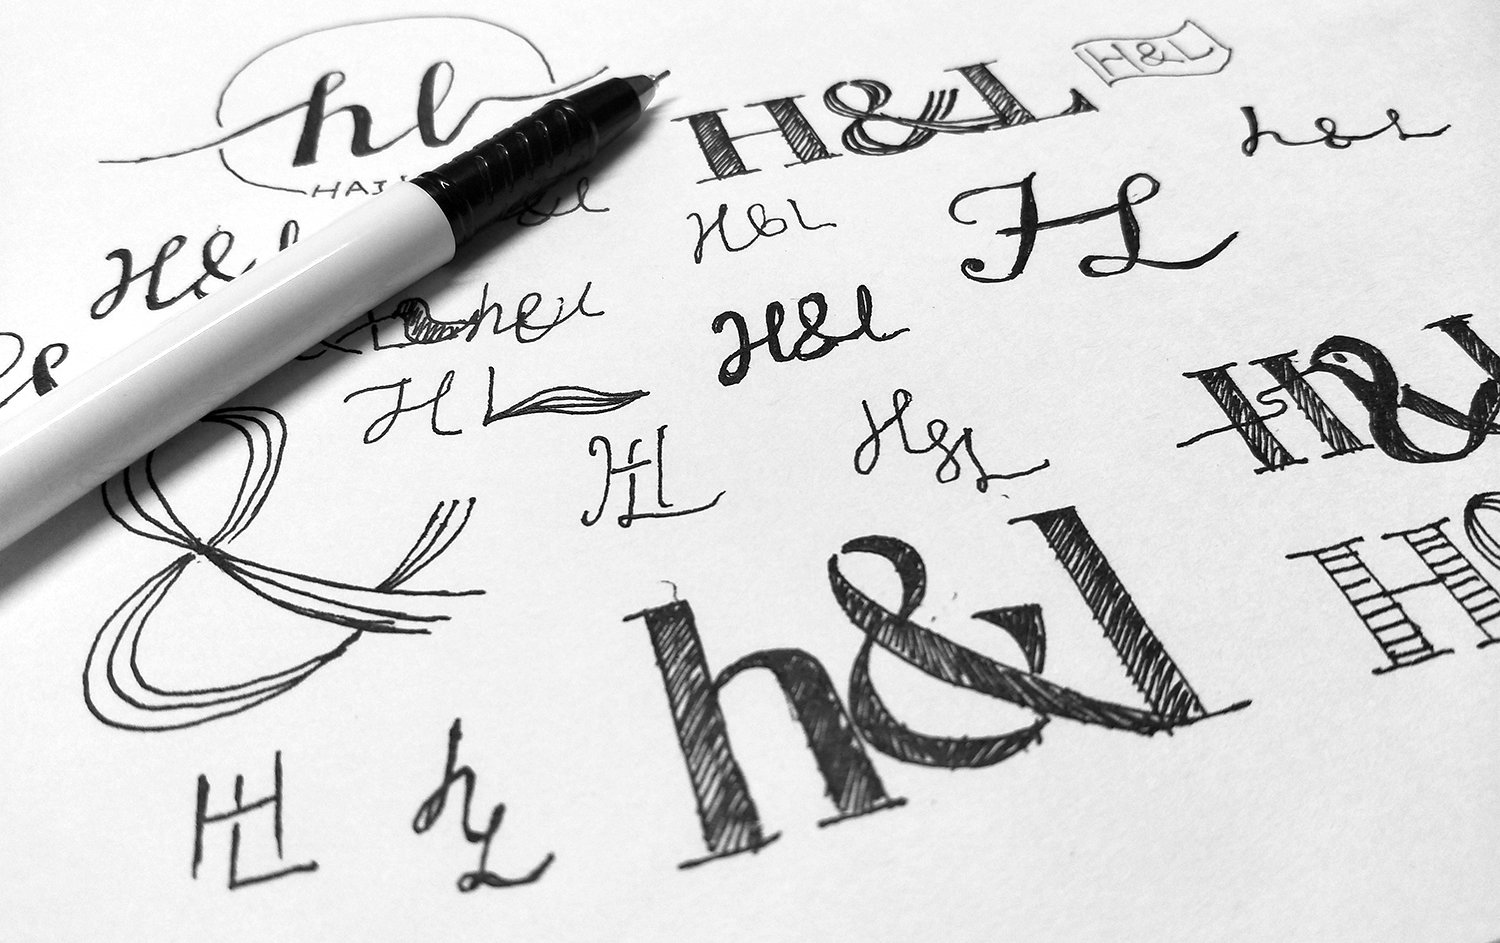 hl
H&L
H&L
h&l
HAI
H&l
&l
H&L
HL
h&l
H&l
HL
H&
HL
H&L
&
h&l
H
HL
hL